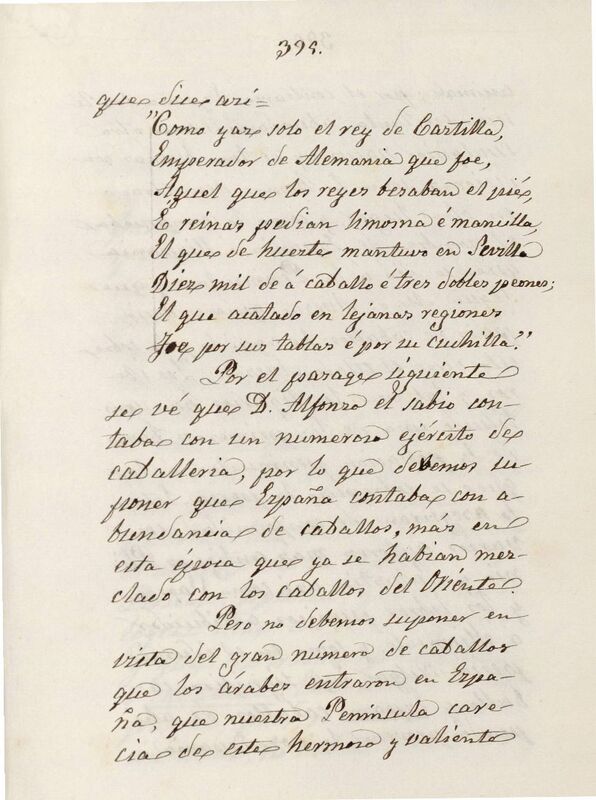 395.
que dice asi=
"Como yaz solo el rey de Castilla,
Emperador de Alemania que foe,
Aquel que los reyes besaban el pié,
E reinas pedian limosna é mancilla,
El que de hueste mantuvo en Sevilla
Diez mil de á caballo é tres dobles peones;
El que acatado en lejanas regiones
Foe por sus tablas é por su cuchilla."
Por el pasage siguiente
se vé que D. Alfonso el sabio con-
taba con un numeroso ejército de
caballeria, por lo que debemos su-
poner que España contaba con a-
bundancia de caballos, más en
esta época que ya se habian mez-
clado con los caballos del Oriénte.
Pero no debemos suponer en
vista del gran número de caballos
que los árabes entraron en Espa-
ña, que nuestra Peninsula care-
cia de este hermoso y valiente